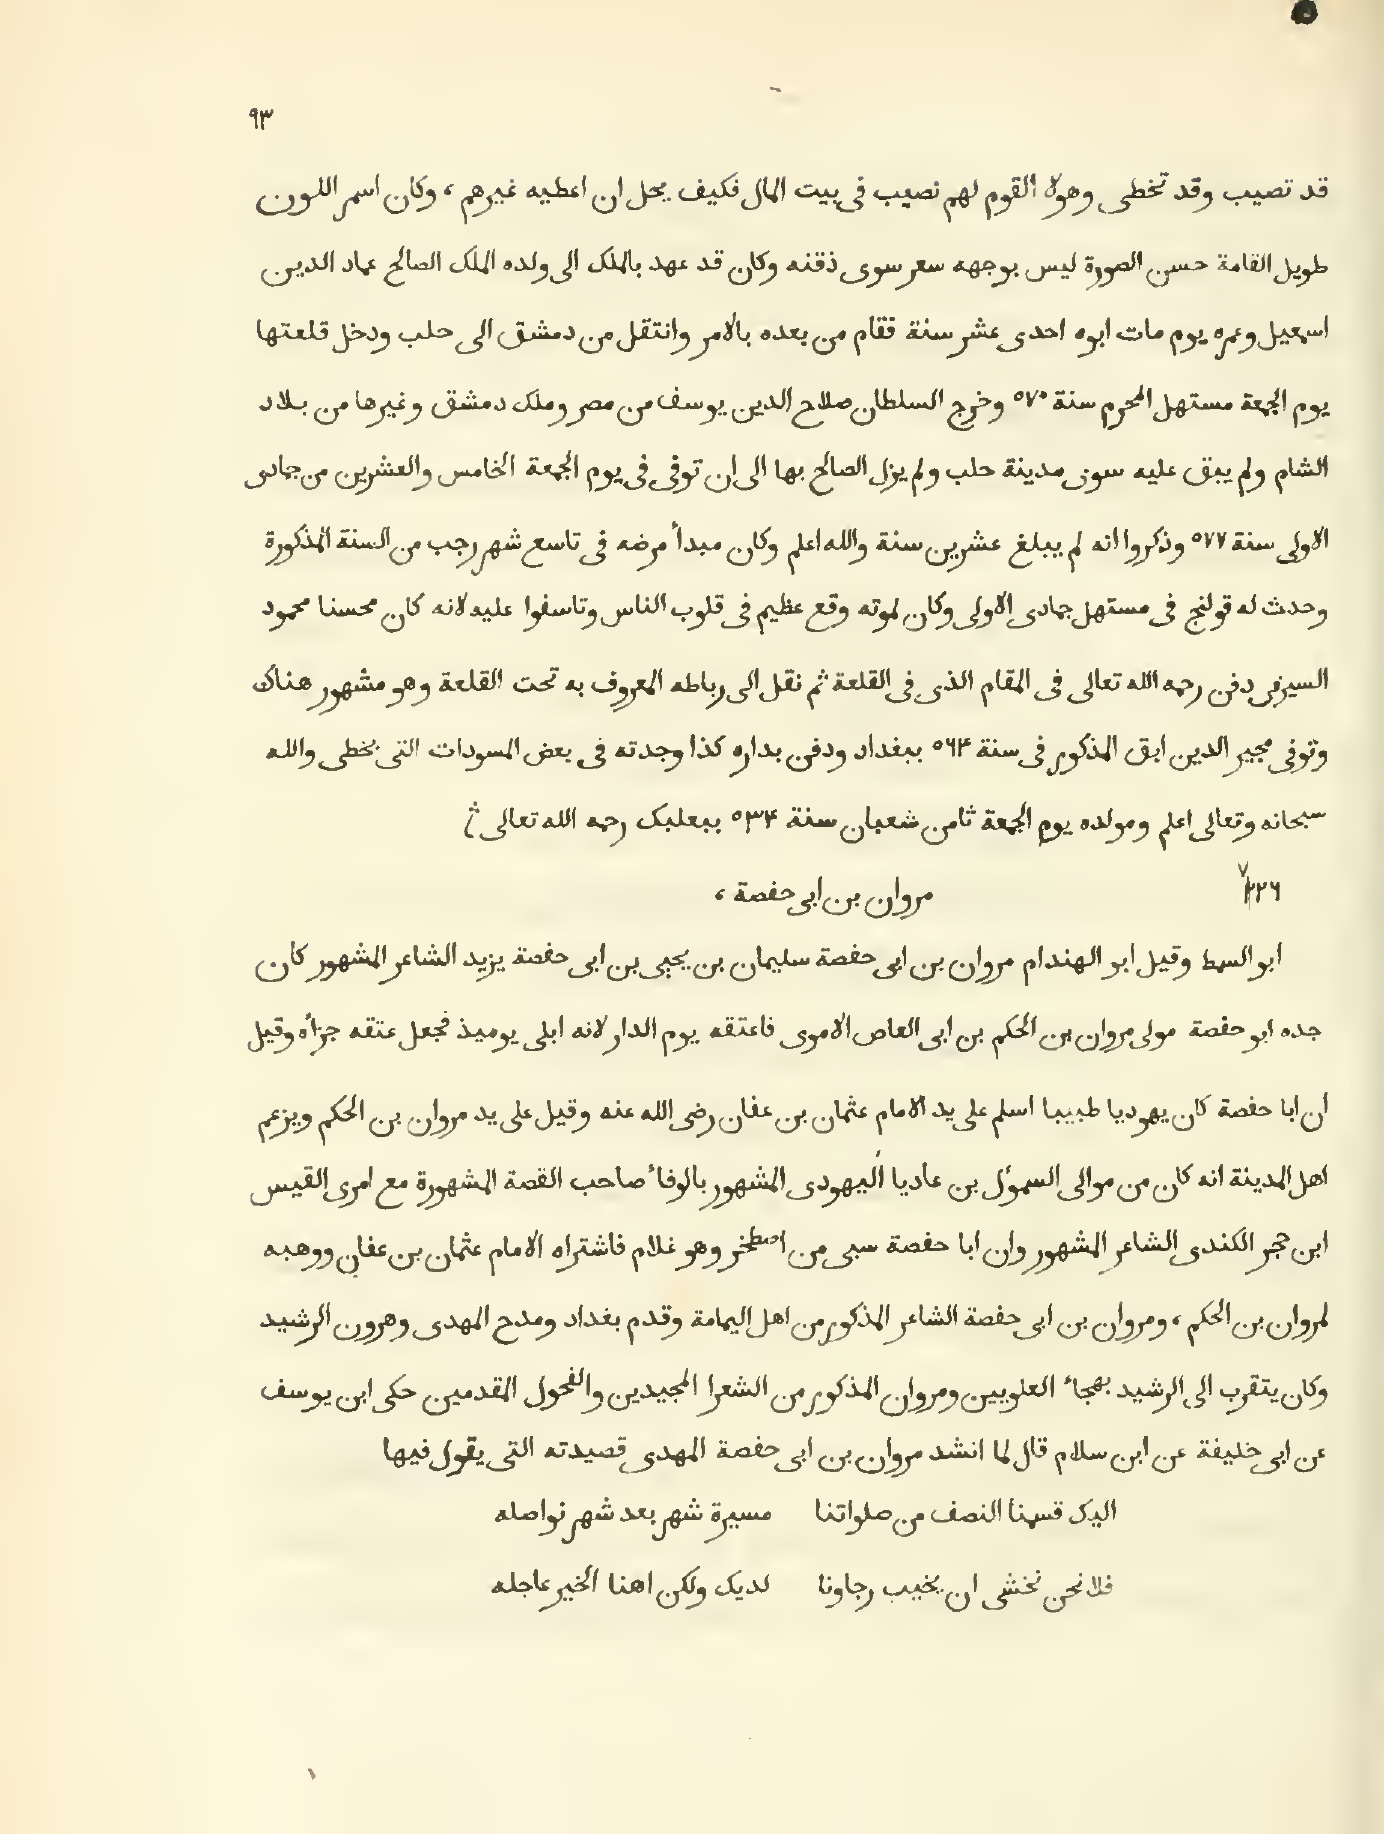 ٩٣
قد تصيب وقد تخطى وهولا القوم لهم نصيب فى بيت المال فكيف يحل ان اعطيه غيرهم ، وكان اسمر اللون
طويل القامة حسن الصورة ليس بوجهه سعر سوى ذقنه وكان قد عهد بالملك الى ولده الملك الصالح عماد الدين
اسمعيل وعمره يوم مات ابوه احدى عشر سنة فقام من بعده بالامر وانتقل من دمشق الى حلب ودخل قلعتها
يوم الجمعة مستهل المحرم سنة ٥٧٠ وخرج السلطان صلاح الدين يوسف من مصر وملك دمشق وغيرها من بلاد
الشام ولم يبق عليه سوى مدينة حلب ولم يزل الصالح بها الى ان توفى فى يوم الجمعة الخامس والعشرين من جمادى
الاولى سنة ٥٧٧ وذكروا انه لم يبلغ عشرين سنة والله اعلم وكان مبدأ مرضه فى تاسع شهر رجب من السنة المذكورة
وحدث له قولنج فى مستهل جمادى الاولى وكان لموته وقع عظيم فى قلوب الناس وتاسفوا عليه لانه كان محسنا محمود
السيرة دفن رحمه الله تعالى فى المقام الذى فى القلعة ثم نقل الى رباطه المعروف به تحت القلعة وهو مشهور هناك
وتوفى مجير الدين ابق المذكور فى سنة ٥٦٤ ببغداد ودفن بداره كذا وجدته فى بعض المسودات التى بخطى والله
سبحانه وتعالى اعلم ومولده يوم الجمعة ثامن شعبان سنة ٥٣٤ ببعلبك رحمه الله تعالى
مروان بن ابى حفصة ،
ابو السمط وقيل ابو الهندام مروان بن ابى حفصة سليمان بن يحيى بن ابى حفصة يزيد الشاعر المشهور كان
جده ابو حفصة مولى مروان بن الحكم بن ابى العاص الاموى فاعتقه يوم الدار لانه ابلى يوميذ فجعل عتقه جزأه وقيل
ان ابا حفصة كان يهوديا طبيبا اسلم على يد الامام عثمان بن عفان رضى الله عنه وقيل على يد مروان بن الحكم ويزعم
اهل المدينة انه كان من موالى السموُل بن عاديا اليهودى المشهور بالوفاء صاحب القصة المشهورة مع امرى القيس
ابن حجر الكندى الشاعر المشهور وان ابا حفصة سبى من اصطخر وهو غلام فاشتراه الامام عثمان بن عفان ووهبه
لمروان بن الحكم ، ومروان بن ابى حفصة الشاعر المذكور من اهل اليمامة وقدم بغداد ومدح المهدى وهرون الرشيد
وكان يتقرب الى الرشيد بهجاء العلويين ومروان المذكور من الشعرا المجيدين والفحول المقدمين حكى ابن يوسف
عن ابى خليفة عن ابن سلام قال لما انشد مروان بن ابى حفصة المهدى قصيدته التى يقول فيها
اليك قسمنا النصف من صلواتنا مسيرة شهر بعد شهر نواصله
فلا نحن نخشى ان يخيب رجاونا لديك ولكن اهنا الخير عاجله